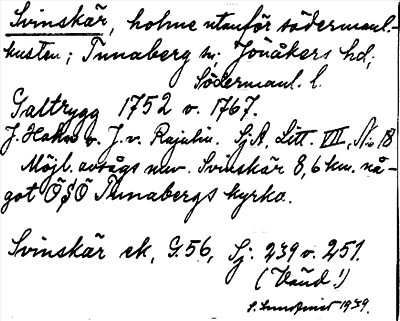 Svinskär, holme utanför södermanl.-
kusten; Tunaberg sn; Jönåkers hd;
Södermanl. l.
Galtrygg 1752 o. 1767.
J. Hahn o. J. v. Rajalin. SjA, Litt. VII, No 18
Möjl. avsågs nuv. Svinskär 8,6 km. nå-
got ÖSÖ Tunabergs kyrka.
Svinskär ek, G.56, Sj: 239 o. 251.
(Vänd!)
1939.